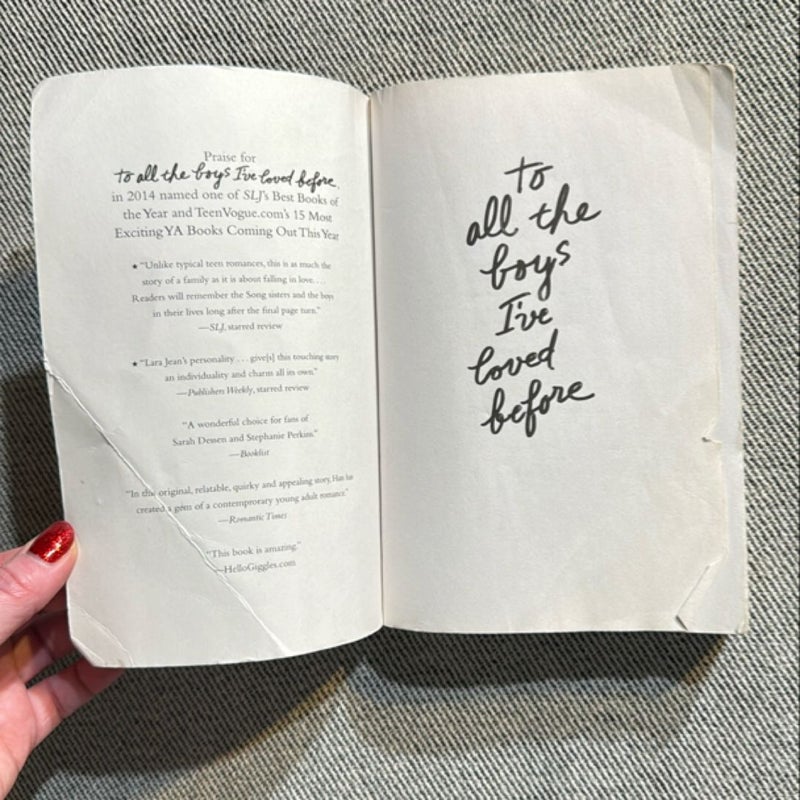 Praise for
to all the boys I've loved before,
in 2014 named one of SLJ's Best Books of
the Year and TeenVogue.com's 15 Most
Exciting YA Books Coming Out This Year
★ "Unlike typical teen romances, this is as much the
story of a family as it is about falling in love. . . .
Readers will remember the Song sisters and the boys
in their lives long after the final page turn."
—SLJ, starred review
★ "Lara Jean's personality . . . give[s] this touching story
an individuality and charm all its own."
—Publishers Weekly, starred review
"A wonderful choice for fans of
Sarah Dessen and Stephanie Perkins."
—Booklist
"In this original, relatable, quirky and appealing story, Han has
created a gem of a contemprorary young adult romance."
—Romantic Times
"This book is amazing."
—HelloGiggles.com
to
all the
boys
I've
loved
before